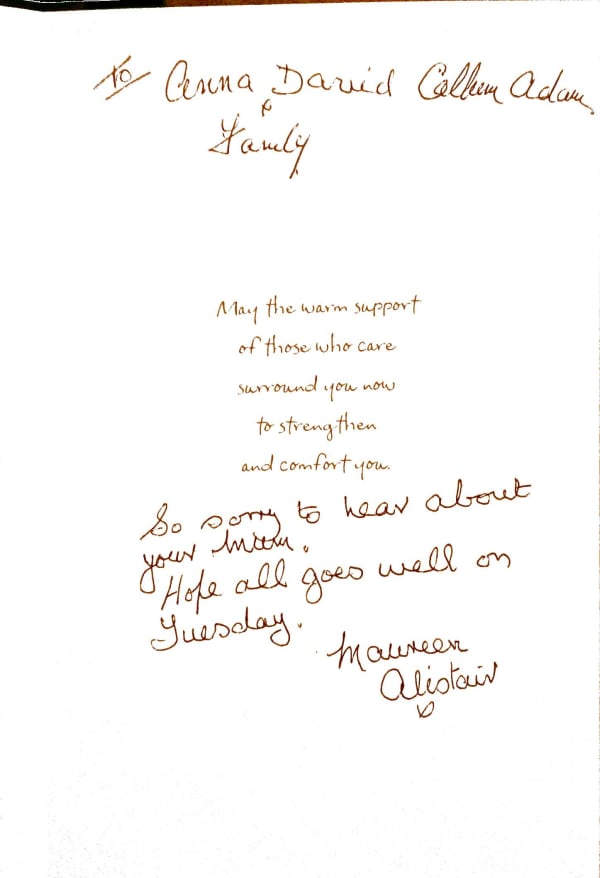 To Anna David Callum Adam
& Family
May the warm support
of those who care
surround you now
to strengthen
and comfort you.
So sorry to hear about
your Mum.
Hope all goes well on
Tuesday.
Maureen
Alistair